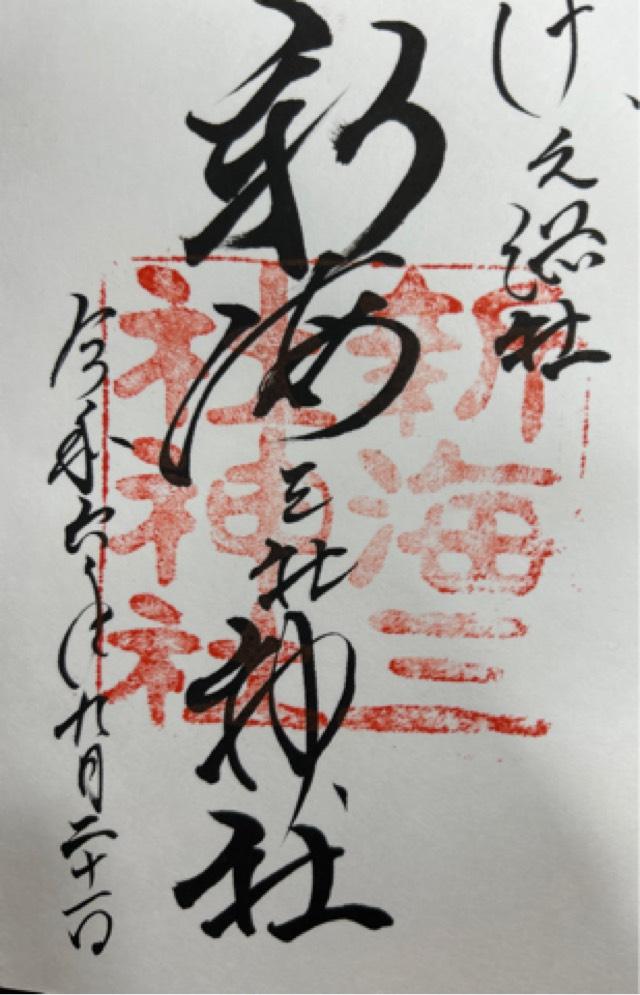 総社
新海三社神社
令和六年九月二十一日
新海三
社神
社神社